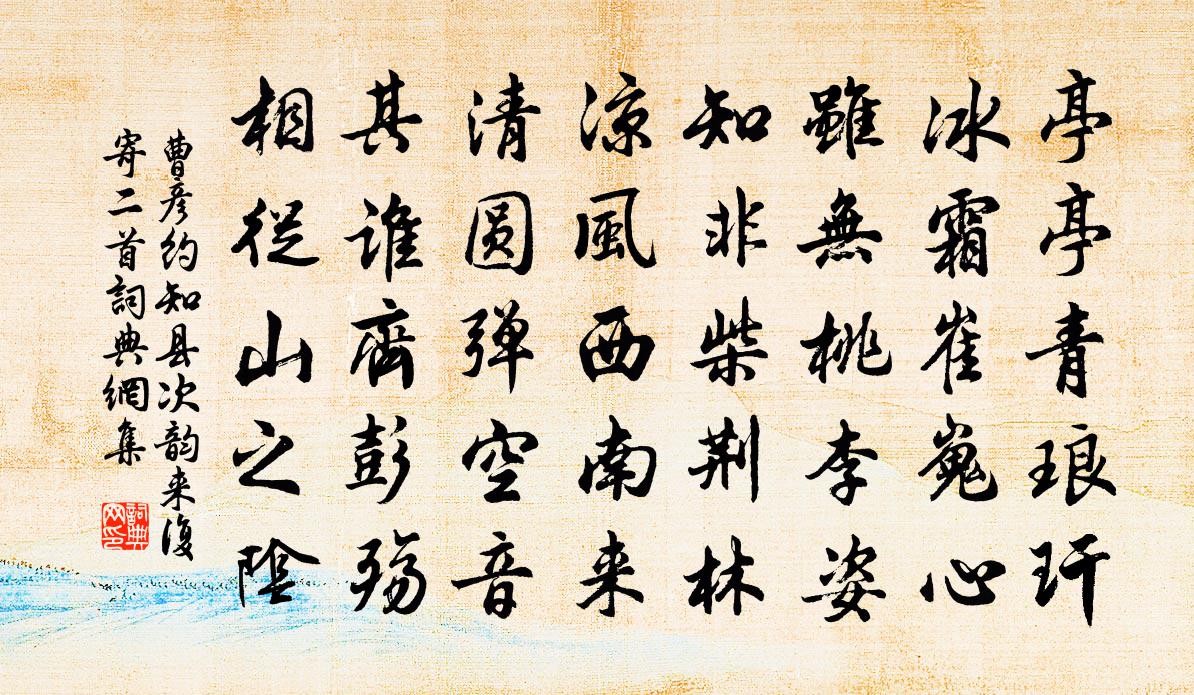 亭亭青琅玕
冰霜崔嵬心
雖無桃李姿
知非柴荆林
凉風西南来
清圆弹空音
其谁齊彭殇
相從山之陰
曹彦约知县次韵来復
寄二首詞典網集
詞典
网印